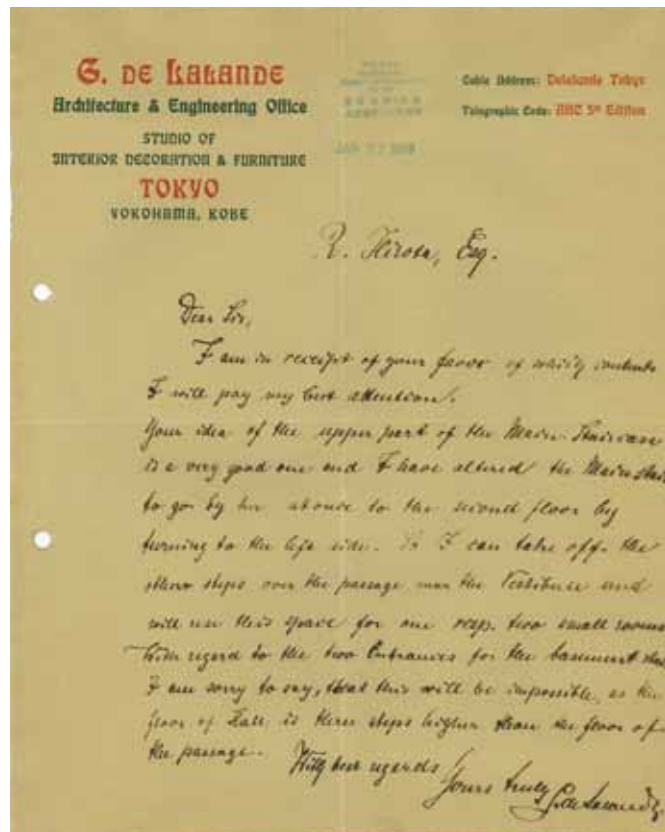 G. DE LALANDE
Architecture & Engineering Office
STUDIO OF
INTERIOR DECORATION & FURNITURE
TOKYO
YOKOHAMA, KOBE
Cable Address: Delalande Tokyo
Telegraphic Code: ABC 5th Edition
Esq.
Dear Sir,
I am in receipt of your favor of which contents
I will pay my best attention.
Your idea of the upper part of the Main Staircase
is a very good one and I have altered the Main stair
to go by to the second floor by
turning to the left side. So I can take off the
other steps over the passage near the Vestibule and
will use this space for one resp. two small rooms
With regard to the two Entrances for the basement
I am sorry to say, that this will be impossible, as the
floor of Hall is three steps higher than the floor of
the passage.
With best regards
Yours truly
G. de Lalande